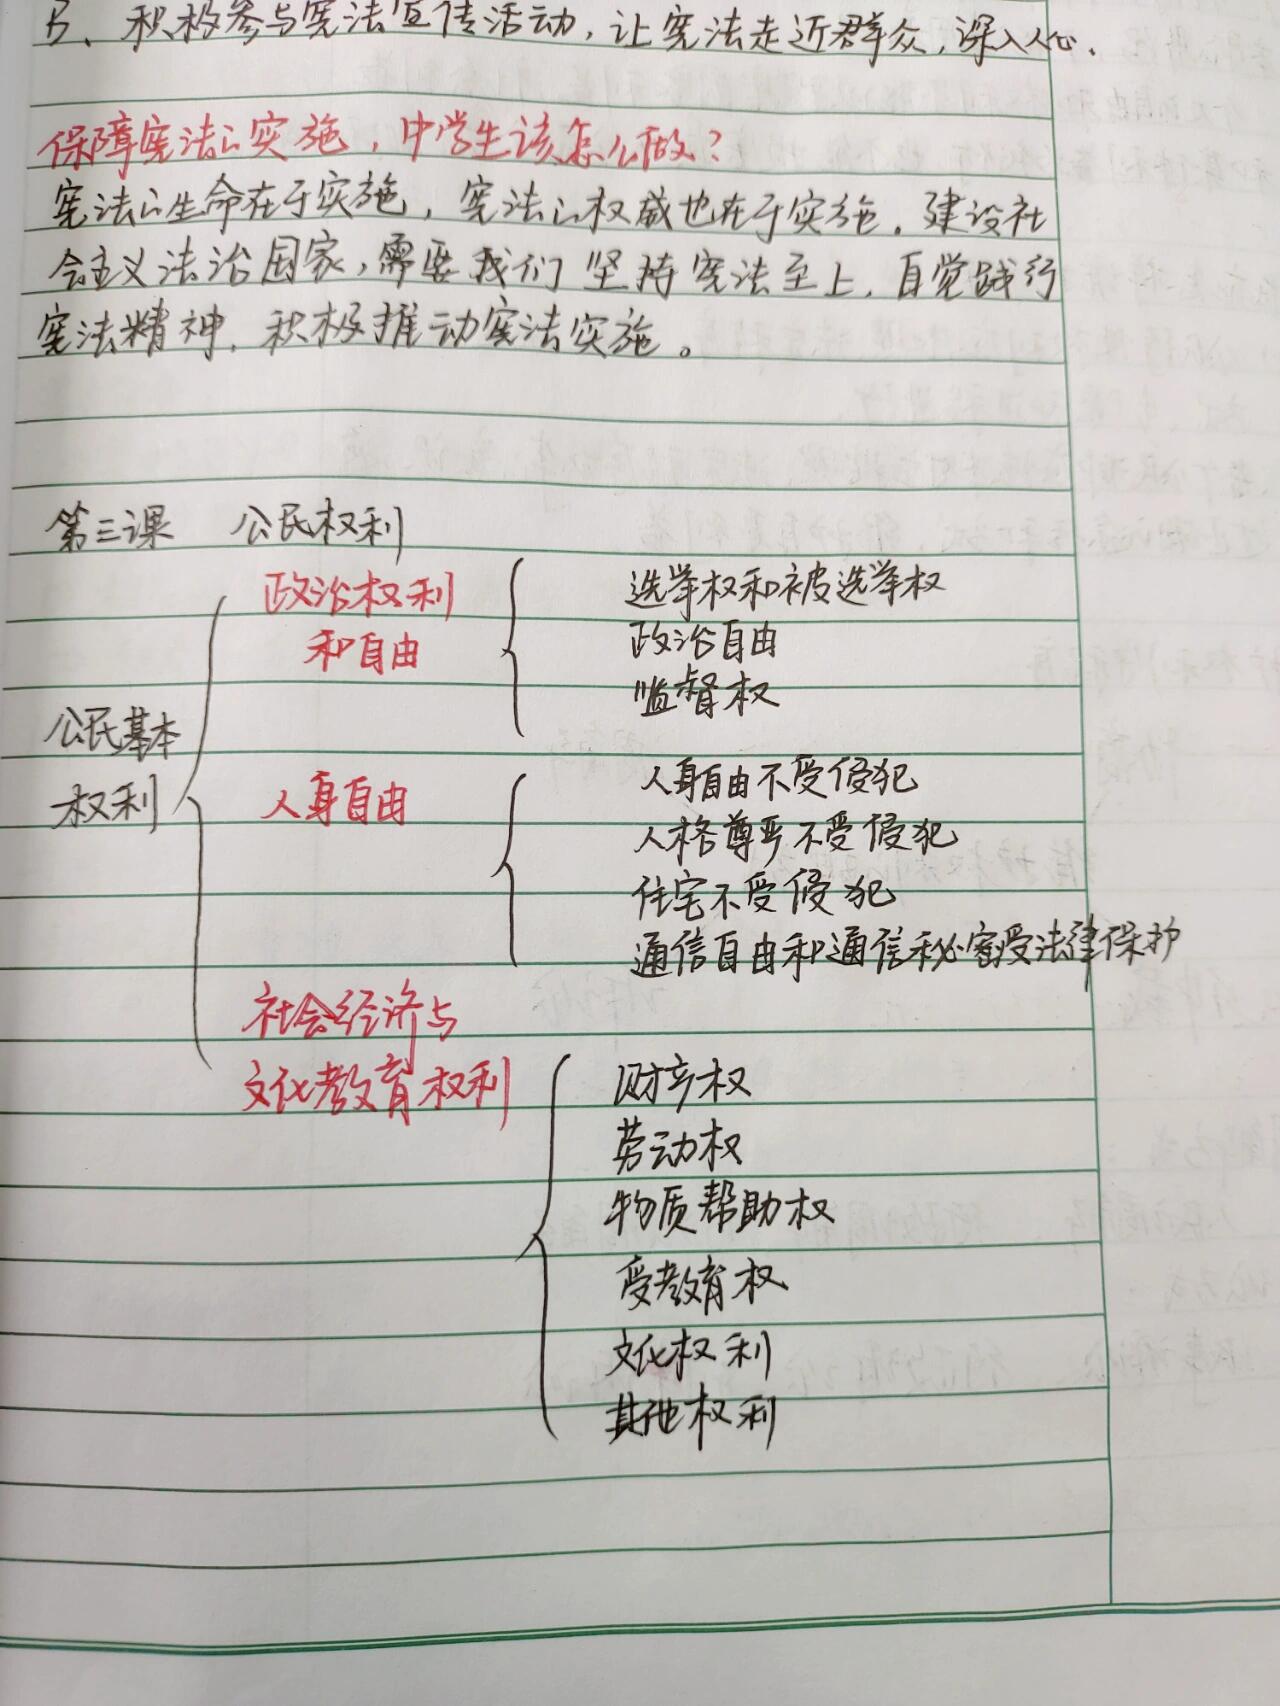 5、积极参与宪法宣传活动,让宪法走近群众,深入人心.
保障宪法的实施,中学生该怎么做?
宪法的生命在于实施,宪法的权威也在于实施。建设社
会主义法治国家,需要我们坚持宪法至上,自觉践行
宪法精神,积极推动宪法实施。
第三课 公民权利
公民基本
权利
政治权利
和自由
选举权和被选举权
政治自由
监督权
人身自由
人身自由不受侵犯
人格尊严不受侵犯
住宅不受侵犯
通信自由和通信秘密受法律保护
社会经济与
文化教育权利
财产权
劳动权
物质帮助权
受教育权
文化权利
其他权利